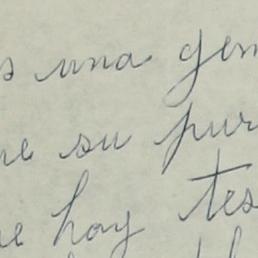 s una gen
ue su pur
ue hay tes